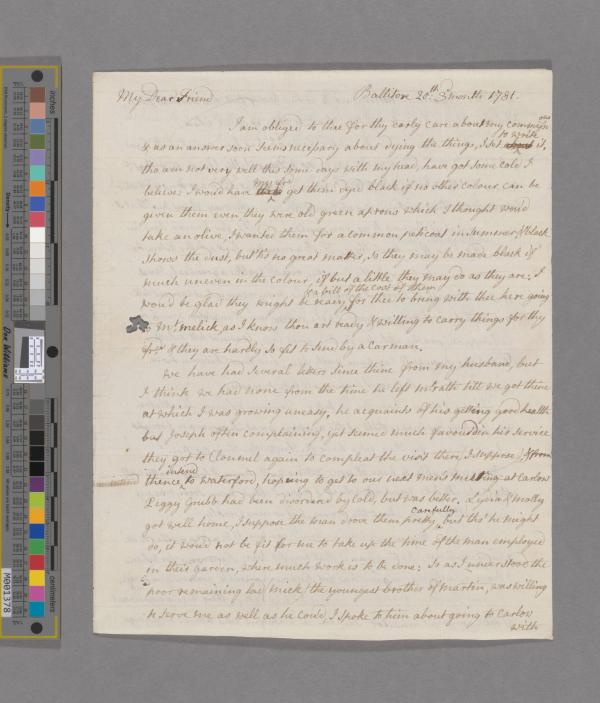 My Dear Friend Ballitore 20th. 3 month 1781.
I am obliged to thee for thy early care about my commissions
to write
& as an answer soon seems necessary about dying the things, I set about it,
tho am not very well this some days with my head, have got some cold I
believe: I would have get them dyed black if no other colour can be
given them even they were old green aprons which I thought wou'd
take an olive, I wanted them for a common peticoat in summer, & black
shows the dust, but tis no great matter, so they may be made black if
much uneven in the colour, if but a little they may do as they are: I
& a bill of the cost of them
wou'd be glad they might be ready for thee to bring with thee here going
to Mt. melick, as I know thou art ready & willing to carry things for thy
frds. & they are hardly so fit to send by a Carman.
We have had several letters since thine from my husband, but
I think we had none from the time he left Mt.rath till we got these
at which I was growing uneasy, he acquaints of his getting good health
but Joseph often complaining, yet seemed much favoured in his service
they got to Clonmel again to compleat the visit there, I suppose, & from
intend
thence to Waterford, hoping to get to our next men's meeting at Carlow
Peggy Grubb had been disordered by cold, but was better. Lydia & Molly
carefully
got well home, I suppose the man drove them pretty, but tho' he might
do, it would not be fit for me to take up the time of the man employed
in their garden, when much work is to be done: so as I understood the
poor remaining lad Mick (the youngest brother of Martin, was willing
to serve me as well as he cou'd, I spoke to him about going to Carlow
with
inches
centimeters
Don Williams
M001378